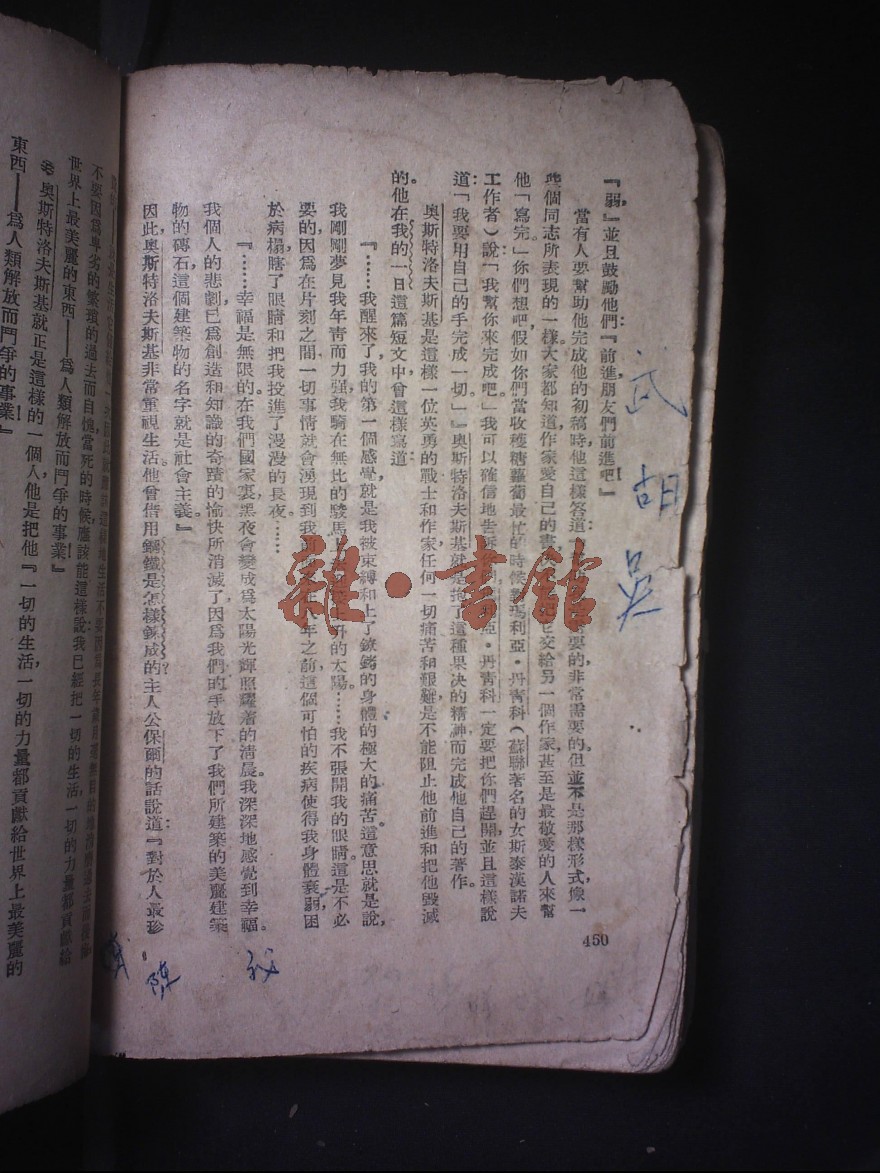 『弱』並且鼓勵他們：『前進，朋友們，前進吧！』
當有人要幫助他完成他的初稿時，他這樣答道：要的，非常需要的。但並不是那樣形式，像一
些個同志所表現的一樣。大家都知道，作家愛自己的書，交給另一個作家，甚至是最敬愛的人來幫
他「寫完」你們想吧，假如你們當收穫糖蘿蔔最忙的時候，教瑪利亞·丹青科（蘇聯著名的女斯泰漢諾夫
工作者）說「我幫你來完成吧。」我可以確信地告訴亞·丹青科一定要把你們趕開，並且這樣說
道：「我要用自己的手完成一切。」』奧斯特洛夫斯基就是抱了這種果決的精神而完成他自己的著作。
奧斯特洛夫斯基是這樣一位英勇的戰士和作家，任何一切痛苦和艱難是不能阻止他前進和把他毀滅
的。他在我的一日這篇短文中曾這樣寫道：
『……我醒來了。我的第一個感覺，就是我被束縛和上了鐐銬的身體的極大的痛苦。這意思就是說，
我剛剛夢見我年青而力强，我騎在無比的駿馬上升的太陽。……我不張開我的眼睛，這是不必
要的，因為在片刻之間，一切事情就會湧現到我年之前，這個可怕的疾病使得我身體衰弱，困
於病榻，瞎了眼睛和把我投進了漫漫的長夜。……
『……幸福是無限的。在我們國家裏，黑夜會變成為太陽光輝照耀着的清晨。我深深地感覺到幸福。
我個人的悲劇已為創造和知識的奇蹟的愉快所消滅了，因為我們的手放下了我們所建築的美麗建築
物的磚石，這個建築物的名字就是社會主義。』
因此，奧斯特洛夫斯基非常重視生活。他曾借用鋼鐵是怎樣鍊成的主人公保爾的話說道：『對於人最珍
450
不要因為卑劣的繁瑣的過去而自愧，當死的時候，應該能這樣說：我已經把一切的生活，一切的力量都貢獻給
世界上最美麗的東西——為人類解放而鬥爭的事業！』
奧斯特洛夫斯基就正是這樣的一個人。他是把他『一切的生活，一切的力量都貢獻給世界上最美麗的
東西——為人類解放而鬥爭的事業！』
胡
陳
雜·書館